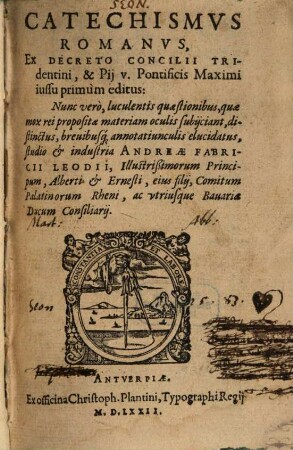 SEON.
CATECHISMVS
ROMANVS,
Ex DECRETO CONCILII TRI-
dentini, & Pij v. Pontificis Maximi
iussu primùm editus:
Nunc verò, luculentis quæstionibus, quæ
mox rei propositæ materiam oculis subijciant, di-
stinctus, breuibusq́; annotatiunculis elucidatus,
studio & industria ANDREÆ FABRI-
CII LEODII, Illustrissimorum Princi-
pum, Alberti & Ernesti, eius filij, Comitum
Palatinorum Rheni, ac vtriusque Bauariæ
Ducum Consiliarij.
CONSTANTIA ET LABORE
Seon
ANTVERPIÆ.
Ex officina Christoph. Plantini, Typographi Regij
M. D. LXXII.